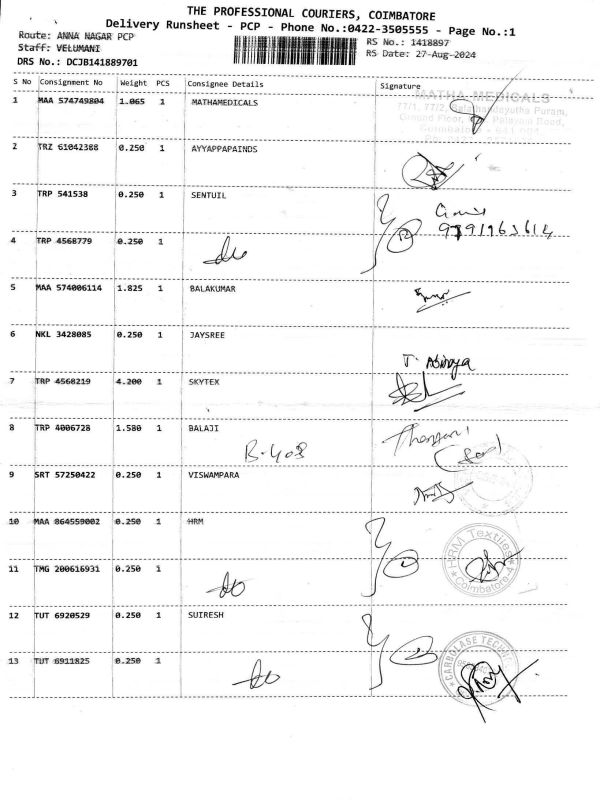 THE PROFESSIONAL COURIERS, COIMBATORE
Delivery Runsheet - PCP - Phone No.:0422-3505555 - Page No.:1
Route: ANNA NAGAR PCP
Staff: VELUMANI
DRS No.: DCJB141889701
RS No.: 1418897
RS Date: 27-Aug-2024
S No Consignment No Weight PCS Consignee Details Signature
1 MAA 574749804 1.065 1 MATHAMEDICALS
MATHA MEDICALS
2 TRZ 61042388 0.250 1 AYYAPPAPAINDS
3 TRP 541538 0.250 1 SENTUIL
4 TRP 4568779 0.250 1
5 MAA 574006114 1.825 1 BALAKUMAR
6 NKL 3428085 0.250 1 JAYSREE
T. Abinaya
7 TRP 4568219 4.200 1 SKYTEX
8 TRP 4006728 1.580 1 BALAJI
B-408
9 SRT 57250422 0.250 1 VISWAMPARA
10 MAA 864559002 0.250 1 HRM
HRM Textiles
Coimbatore-4
11 TMG 200616931 0.250 1
12 TUT 6920529 0.250 1 SUIRESH
13 TUT 6911825 0.250 1